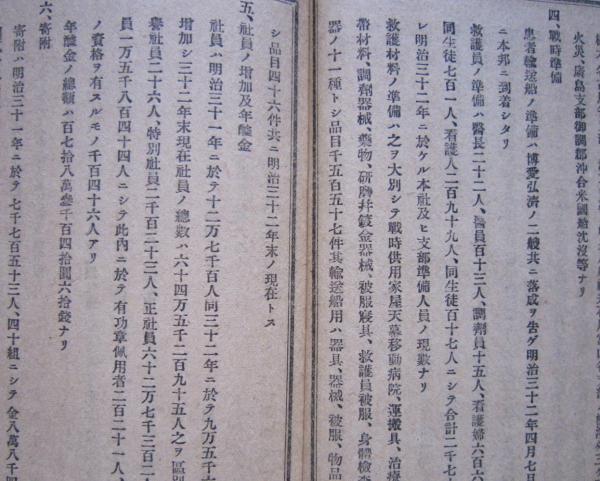 火災、廣島支部御調郡沖合米國船沈沒等ナリ
四、戰時準備
患者輸送船ノ準備ハ博愛弘濟ノ二艘共ニ落成ヲ告ゲ明治三十二年四月七日
ニ本邦ニ到着シタリ
救護員ノ準備ハ醫長二十二人、醫員百十三人、調劑員十五人、看護婦六百六
同生徒七百一人、看護人二百九十九人、同生徒百十七人ニシテ合計二千七十
レ明治三十二年ニ於ケル本社及ヒ支部準備人員ノ現數ナリ
救護材料ノ準備ハ之ヲ大別シテ戰時供用家屋天幕移動病院、運搬具、治療
帶材料、調劑器械、藥物、研磨幷鍍金器械、被服寢具、救護員被服、身體檢查
器ノ十一種トシ品目千五百五十七件其輸送船用ハ器具、器械、被服、物品
シ品目四十六件共ニ明治三十二年末ノ現在トス
五、社員ノ增加及年醵金
社員ハ明治三十一年ニ於テ十二万七千百人同三十二年ニ於テ九万五千六
增加シ三十二年末現在社員ノ總數ハ六十四万五千二百九十五人之ヲ區別
譽社員二十六人、特別社員二千百二十三人、正社員六十二万七千三百二
員一万五千八百四十四人ニシテ此內ニ於テ有功章佩用者二百二十一人、
ノ資格ヲ有スルモノ千百四十六人アリ
年醵金ノ總額ハ百七拾八萬叁千百四拾圓六拾錢ナリ
六、寄附
寄附ハ明治三十一年ニ於テ七千七百五十三人、四十組ニシテ金八萬八千四